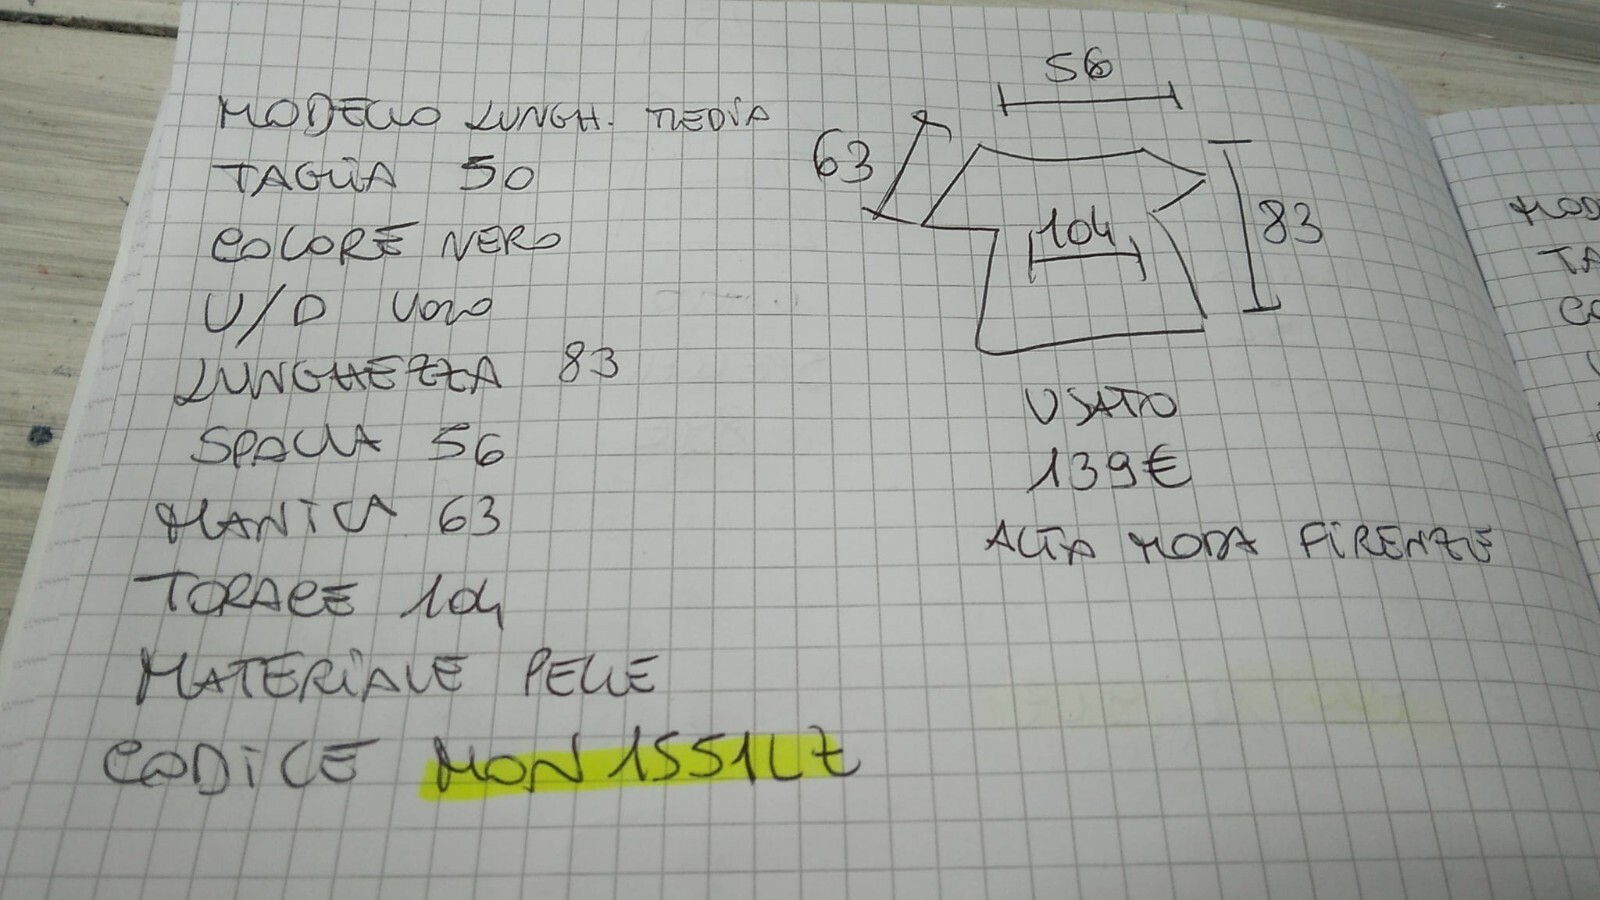 MODELLO LUNGH. MEDIA
TAGLIA 50
COLORE NERO
U/D UOMO
LUNGHEZZA 83
SPALLA 56
MANICA 63
TORACE 104
MATERIALE PELLE
CODICE MON1551LZ
56
63
104
83
USATO
139€
ALTA MODA FIRENZE
MOD
TA
CO